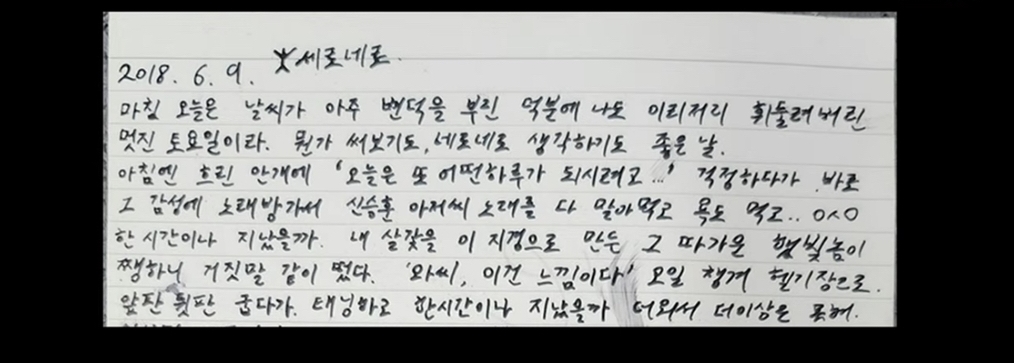 세로네로.
2018. 6. 9.
마침 오늘은 날씨가 아주 변덕을 부린 덕분에 나도 이리저리 휘둘려버린
멋진 토요일이라. 뭔가 써보기도, 네로네로 생각하기도 좋은 날.
아침엔 흐린 안개에 '오늘은 또 어떤하루가 되시려고...' 걱정하다가 바로
그 감성에 노래방가서 신승훈 아저씨 노래를 다 말아먹고 욕도 먹고.. ㅇㅅㅇ
한시간이나 지났을까. 내 살갗을 이 지경으로 만든 그 따가운 햇빛놈이
쨍하니 거짓말 같이 떴다. '와씨, 이건 느낌이다' 오일 챙겨 헬기장으로.
앞판 뒷판 굽다가. 태닝하고 한시간이나 지났을까 더워서 더이상은 못해.